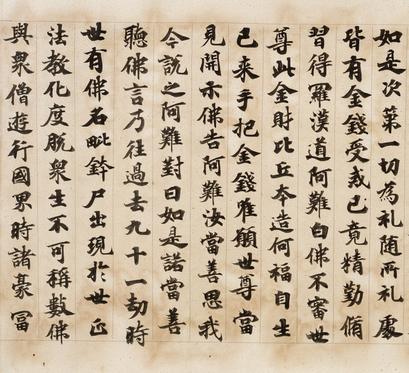 如是次第一切為礼随所礼處
皆有金錢受戒已竟精勤脩
習得羅漢道阿難白佛不審世
尊此金財比丘夲造何福自生
已来手把金錢唯願世尊當
見開示佛告阿難汝當善思我
今說之阿難對曰如是諾當善
聽佛言乃往過去九十一劫時
世有佛名毗鉢尸出現於世正
法教化度脫衆生不可稱數佛
與衆僧遊行國界時諸豪冨